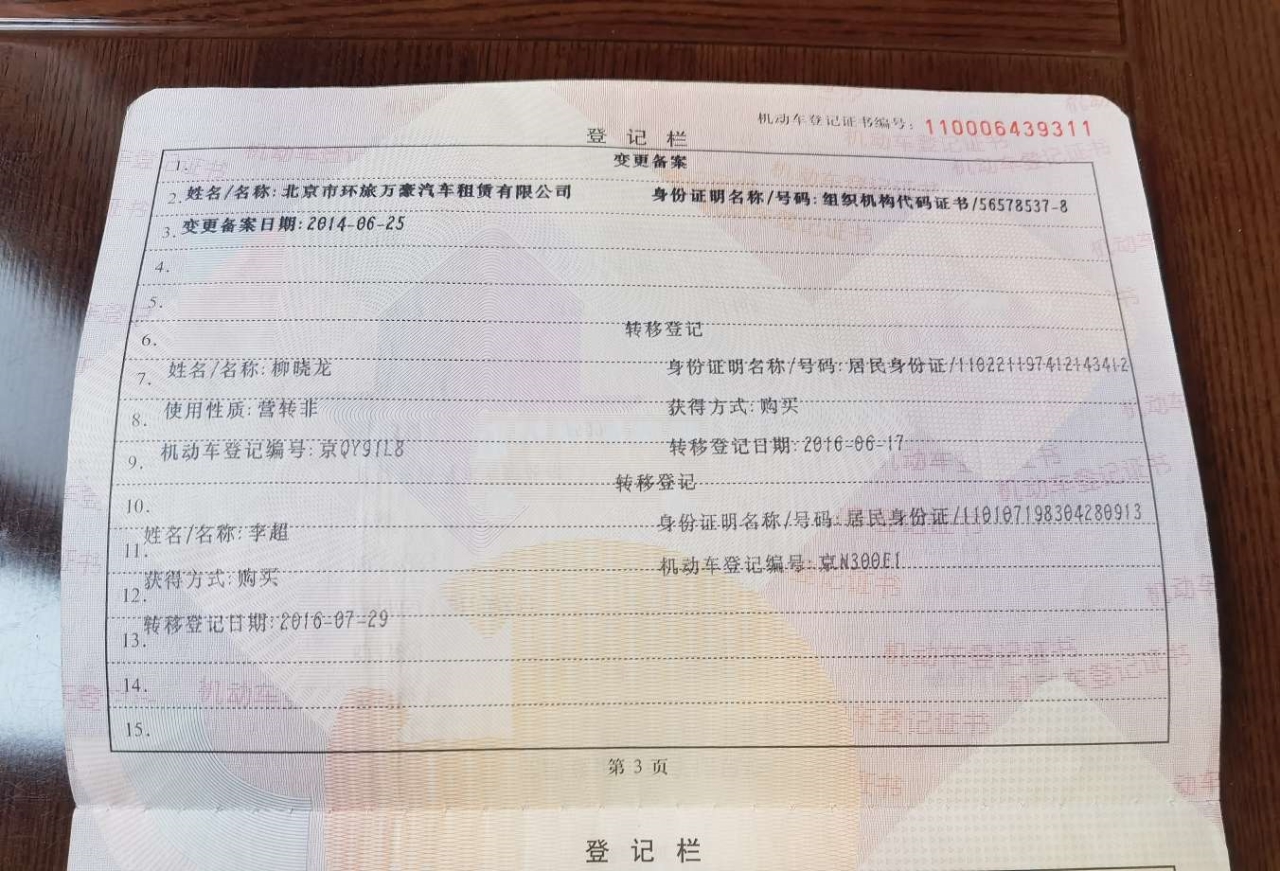 机动车登记证书编号: 110006439311
登 记 栏
1. 变更备案
2. 姓名/名称:北京市环旅万豪汽车租赁有限公司 身份证明名称/号码:组织机构代码证书/56578537-8
3. 变更备案日期:2014-06-25
4.
5.
6. 转移登记
7. 姓名/名称:柳晓龙 身份证明名称/号码:居民身份证/110221197412143412
8. 使用性质:营转非 获得方式:购买
9. 机动车登记编号:京QY91L8 转移登记日期:2016-06-17
10. 转移登记
11. 姓名/名称:李超 身份证明名称/号码:居民身份证/110107198304280913
12. 获得方式:购买 机动车登记编号:京N300E1
13. 转移登记日期:2016-07-29
14.
15.
第 3 页
登 记 栏